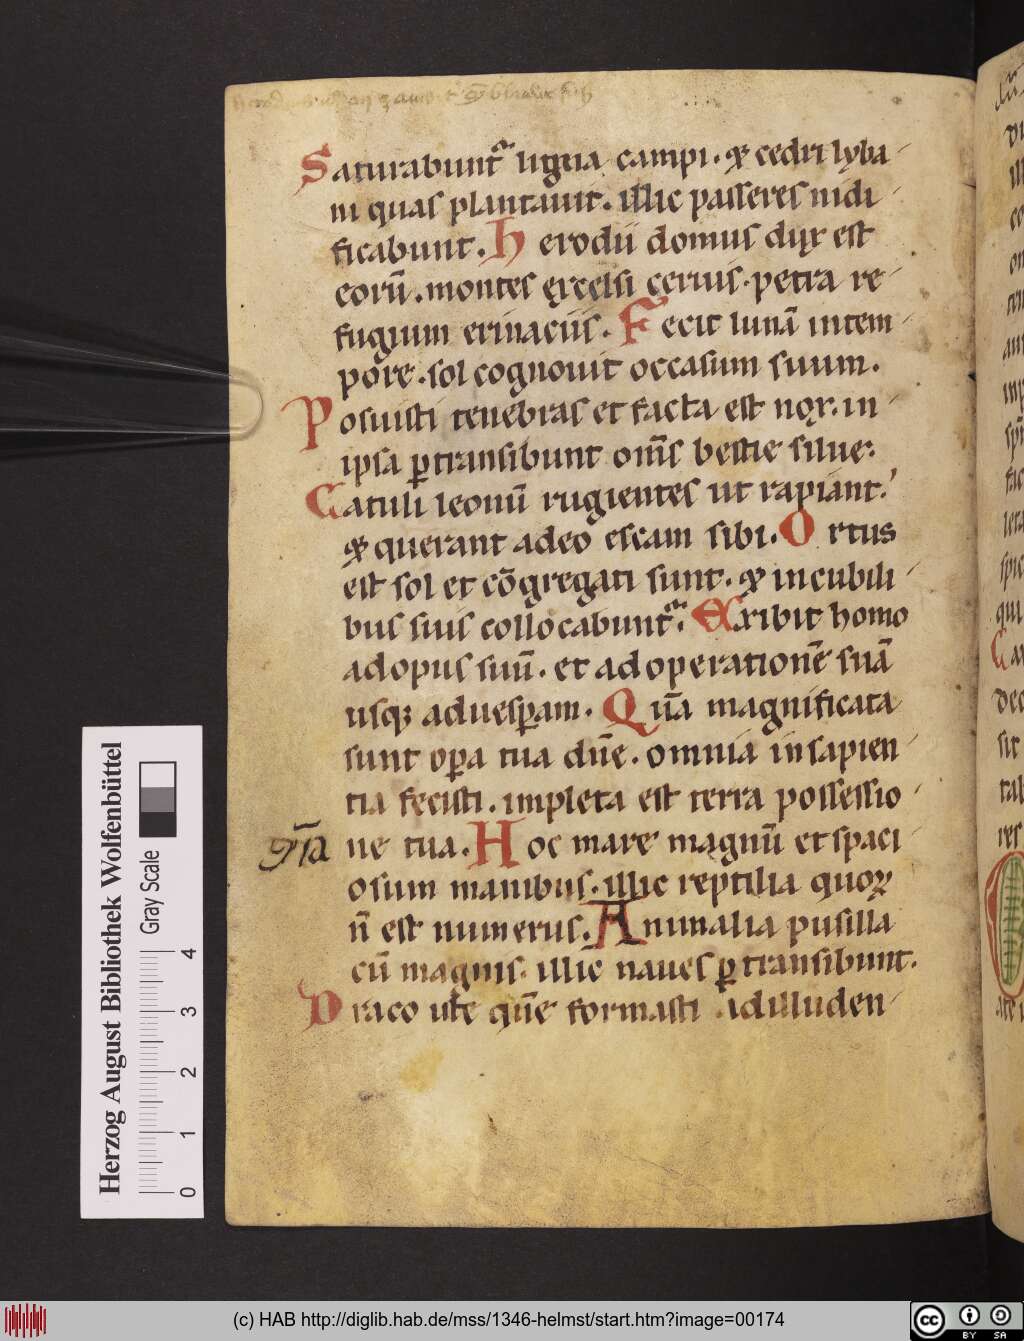 Saturabuntʳ ligna campi. & cedri lyba-
ni quas plantauit. illic passeres nidi-
ficabunt. Herodii domus dux est
eorū. montes excelsi ceruis. petra re-
fugium erinaciis. Fecit lunā intem-
pore. sol cognouit occasum suum.
Posuisti tenebras et facta est nox. in
ipsa ꝑtransibunt om̄s bestie silue.
Catuli leonū rugientes ut rapiant.
& querant adeo escam sibi. Ortus
est sol et cōgregati sunt. & incubili-
bus suis collocabuntʳ. Exibit homo
adopus suū. et adoperationē suā
usqꝫ aduesꝑam. Quā magnificata
sunt oꝑa tua dn̄e. omnia insapien-
tia fecisti. impleta est terra possessio-
ne tua. Hoc mare magnū et spaci-
osum manibus. illic reptilia quoꝝ
n̄ est numerus. Animalia pusilla
cū magnis. illic naues ꝑtransibunt.
Draco iste quē formasti adilluden-
gl̄a
Herzog August Bibliothek Wolfenbüttel
Gray Scale
0 1 2 3 4
(c) HAB http://diglib.hab.de/mss/1346-helmst/start.htm?image=00174
cc BY SA